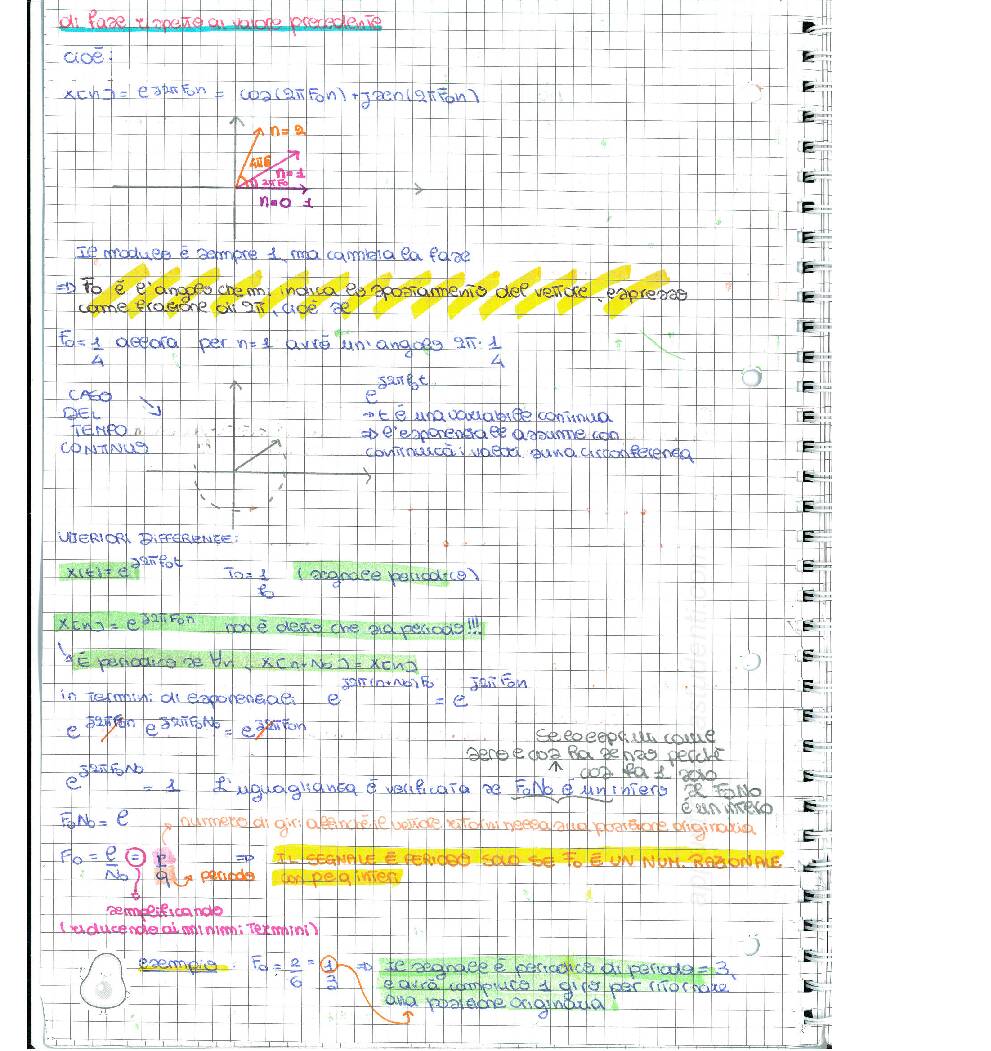 di fase rispetto al valore precedente
cioè:
x[n] = e^j2πF₀n = cos(2πF₀n) + jsen(2πF₀n)
n=2
4πF₀
n=1
2πF₀
n=0 1
Il modulo è sempre 1, ma cambia la fase
⇒ F₀ è l'angolo che mi indica lo spostamento del vettore, espresso
come frazione di 2π, cioè se
F₀ = 1/4 allora per n=1 avrò un'angolo 2π·1/4
CASO
DEL
TEMPO
CONTINUO
e^j2πf₀t
→ t è una variabile continua
⇒ l'esponenziale assume con
continuità i valori su una circonferenza
ULTERIORI DIFFERENZE:
x(t) = e^j2πf₀t T₀ = 1/f₀ (segnale periodico)
x[n] = e^j2πF₀n non è detto che sia periodo!!!
↳ È periodico se ∀n, x[n+N₀] = x[n]
in termini di esponenziali e^j2π(n+N₀)F₀ = e^j2πF₀n
e^j2πF₀n e^j2πF₀N₀ = e^j2πF₀n
zero e così ha senso perché
cos fa 1
se F₀N₀
è un intero
e^j2πF₀N₀ = 1 L'uguaglianza è verificata se F₀N₀ è un intero
F₀N₀ = l → numero di giri affinché il vettore ritorni nella sua posizione originaria
F₀ = l/N₀ = p/q → periodo ⇒ IL SEGNALE È PERIODO SOLO SE F₀ È UN NUM. RAZIONALE
con p e q interi
semplificando
(riducendo ai minimi termini)
esempio: F₀ = 2/6 = 1/3 ⇒ il segnale è periodico di periodo = 3,
e avrà compiuto 1 giro per ritornare
alla posizione originaria